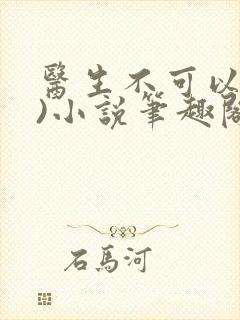 醫生不可以
)小說筆趣閣
石馬河